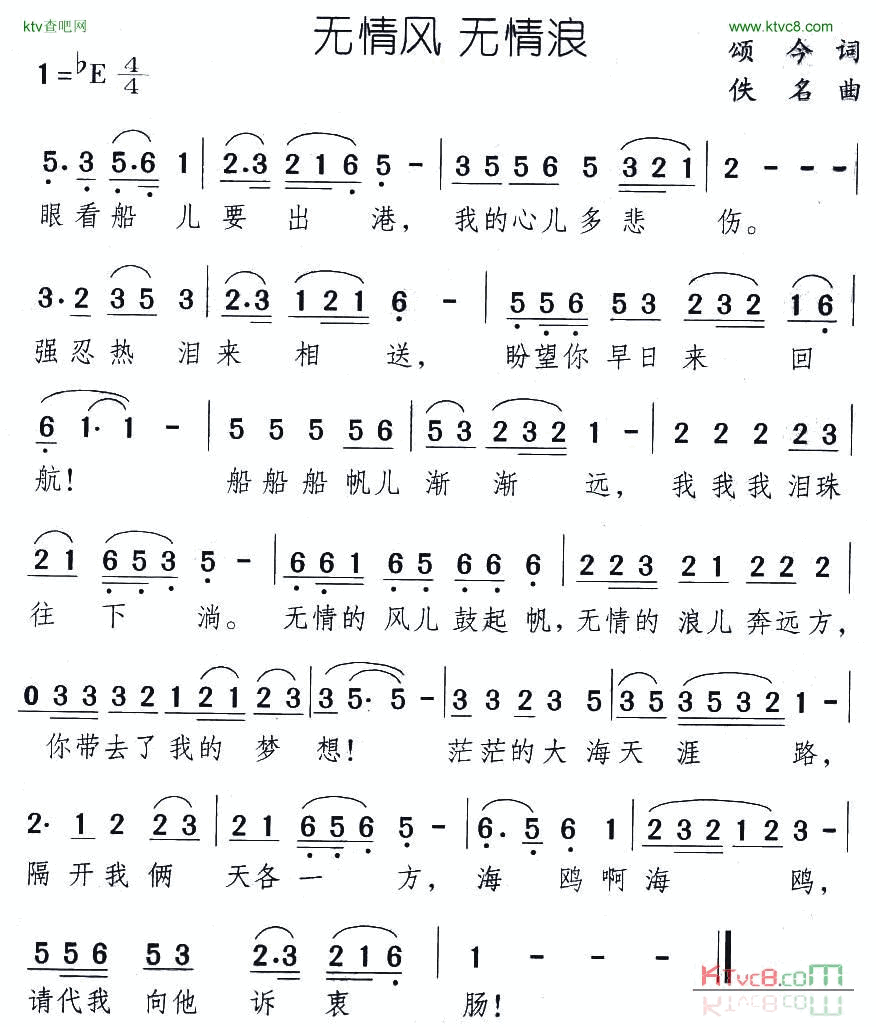 ktv查吧网
www.ktvc8.com
无情风 无情浪
1=♭E 4/4
颂今词
佚名曲
5. 3 5.6 1 | 2.3 216 5 - | 35 56 5 321 | 2 - - - |
眼看船儿要出港，我的心儿多悲伤。
3. 2 35 3 | 2.3 121 6 - | 556 53 232 16 |
强忍热泪来相送，盼望你早日来回
6 1. 1 - | 5 5 5 56 | 53 232 1 - | 2 2 2 23 |
航！船船船帆儿渐渐远，我我我泪珠
21 653 5 - | 661 65 66 6 | 223 21 22 2 |
往下淌。无情的风儿鼓起帆，无情的浪儿奔远方，
033 32 121 23 | 3 5. 5 - | 3 3 23 5 | 35 3532 1 - |
你带去了我的梦想！茫茫的大海天涯路，
2. 1 2 23 | 21 656 5 - | 6. 5 6 1 | 232 12 3 - |
隔开我俩天各一方，海鸥啊海鸥，
556 53 2.3 216 | 1 - - ‖
请代我向他诉衷肠！
KTvc8.com